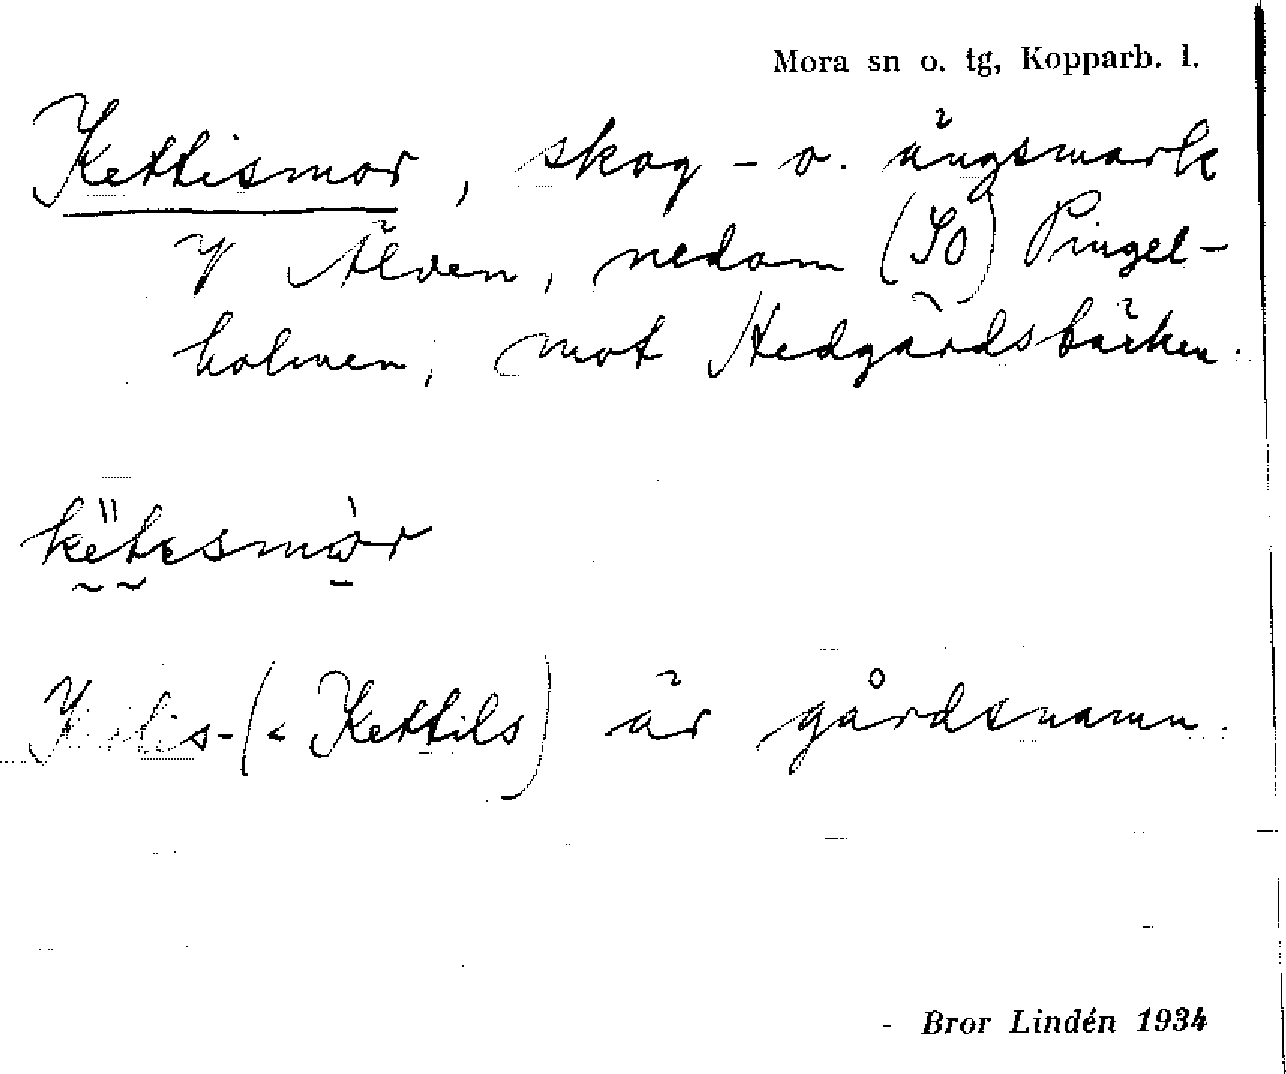 Mora sn o. tg, Kopparb. l.
Kettismor, skog- o. ängsmark
V Älven, nedom (SO) Pingel-
holmen, mot Hedgårdsbäcken.
kètesmòr
Kettis- (< Kettils) är gårdsnamn.
- Bror Lindén 1934